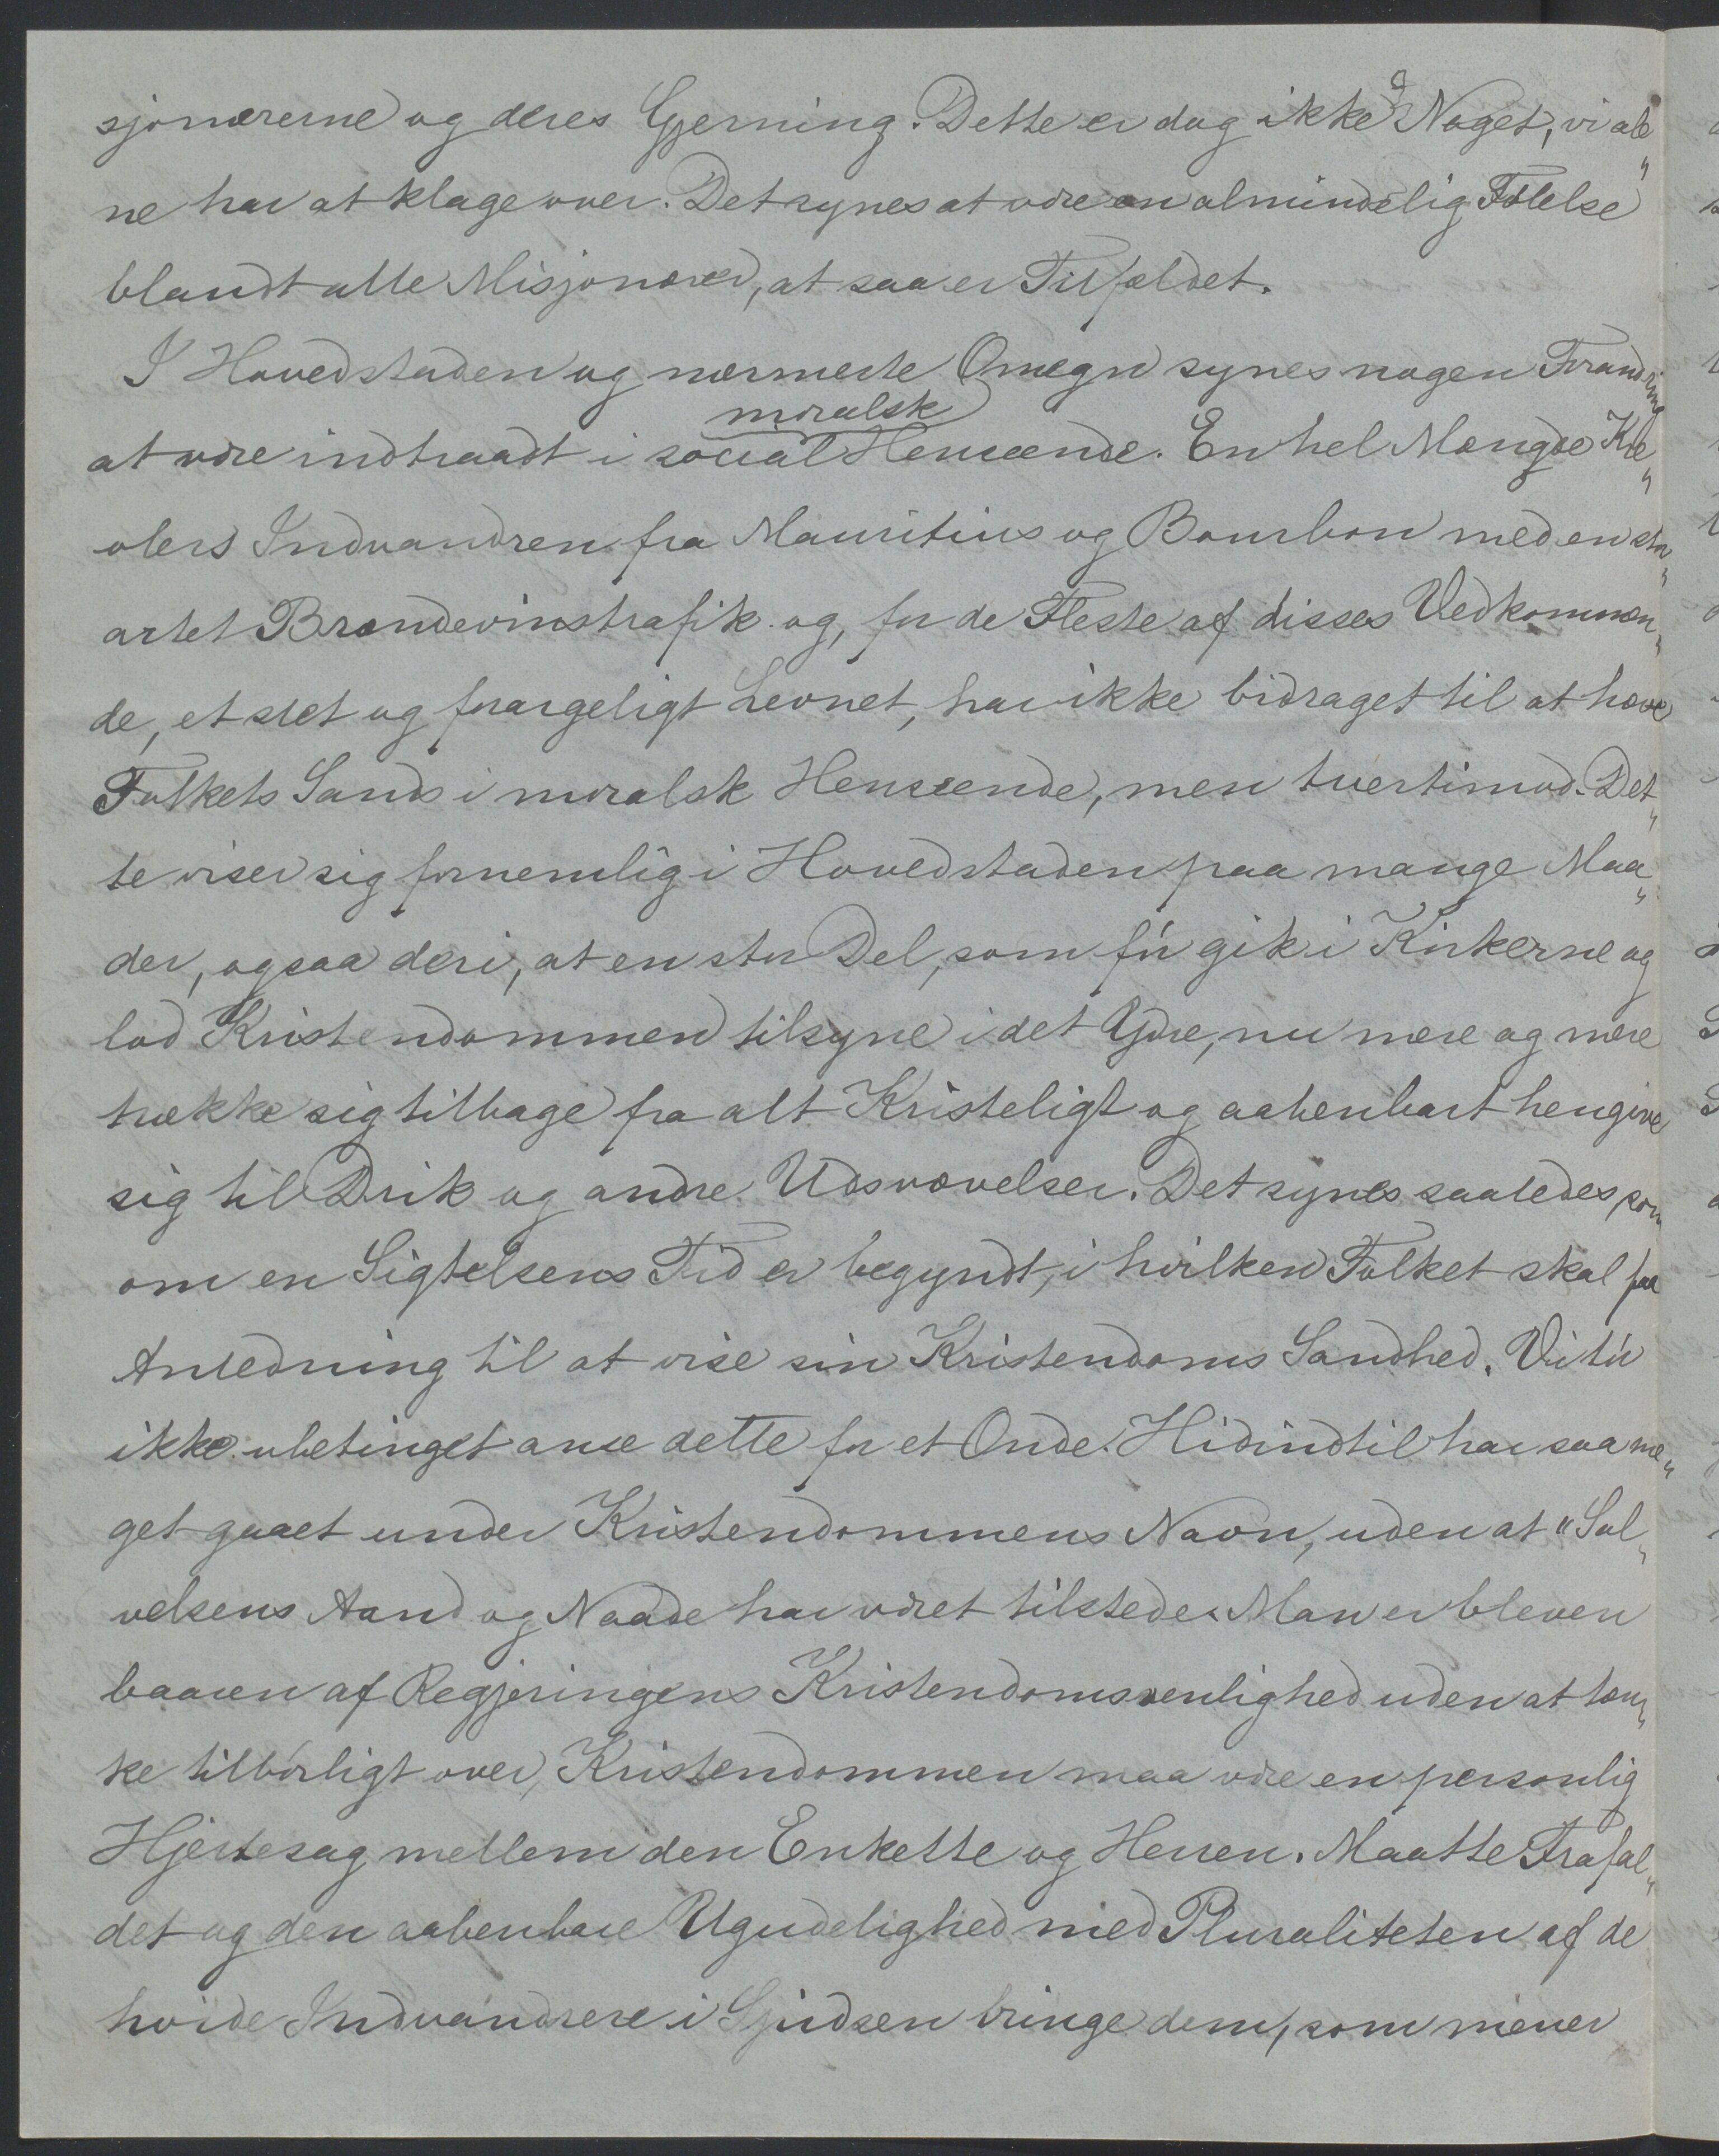 sjonærerne og deres Gjerning. Dette er dog ikke Noget, vi ale„
ne har at klage over. Det synes at være en almindelig Følelse
blandt alle Misjonærer, at saa er Tilfældet.
I Hovedstaden og nærmeste Omegn synes nogen Forandring
moralsk
at være indtraadt i social Henseende. En hel Mængde Kre„
olers Indvandren fra Mauritius og Bourbon med en stor„
artet Brændevinstrafik og, for de Fleste af disses Vedkommen„
de, et slet og forargeligt Levnet, har ikke bidraget til at hæve
Folkets Sands i moralsk Henseende, men tvertimod. Det„
te viser sig fornemlig i Hovedstaden paa mange Maa„
der, ogsaa deri, at en stor Del, som før gik i Kirkerne og
lod Kristendommen tilsyne i det Ydre, nu mere og mere
trække sig tilbage fra alt Kristeligt og aabenbart hengive
sig til Drik og andre Udsvævelser. Det synes saaledes som
om en Sigtelsens Tid er begyndt, i hvilken Folket skal faa
Anledning til at vise sin Kristendoms Sandhed. Vi tør
ikke ubetinget anse dette for et Onde. Hidindtil har saa me„
get gaaet under Kristendommens Navn, uden at "Sal„
velsens Aand og Naade har været tilstede. Man er bleven
baaren af Regjeringens Kristendomsvenlighed uden at tæn„
ke tilbørligt over, Kristendommen maa være en personlig
Hjertesag mellem den Enkelte og Herren. Maatte Frafal„
det og den aabenbare Ugudelighed med Pluraliteten af de
hvide Indvandrere i Spidsen bringe dem, som mener